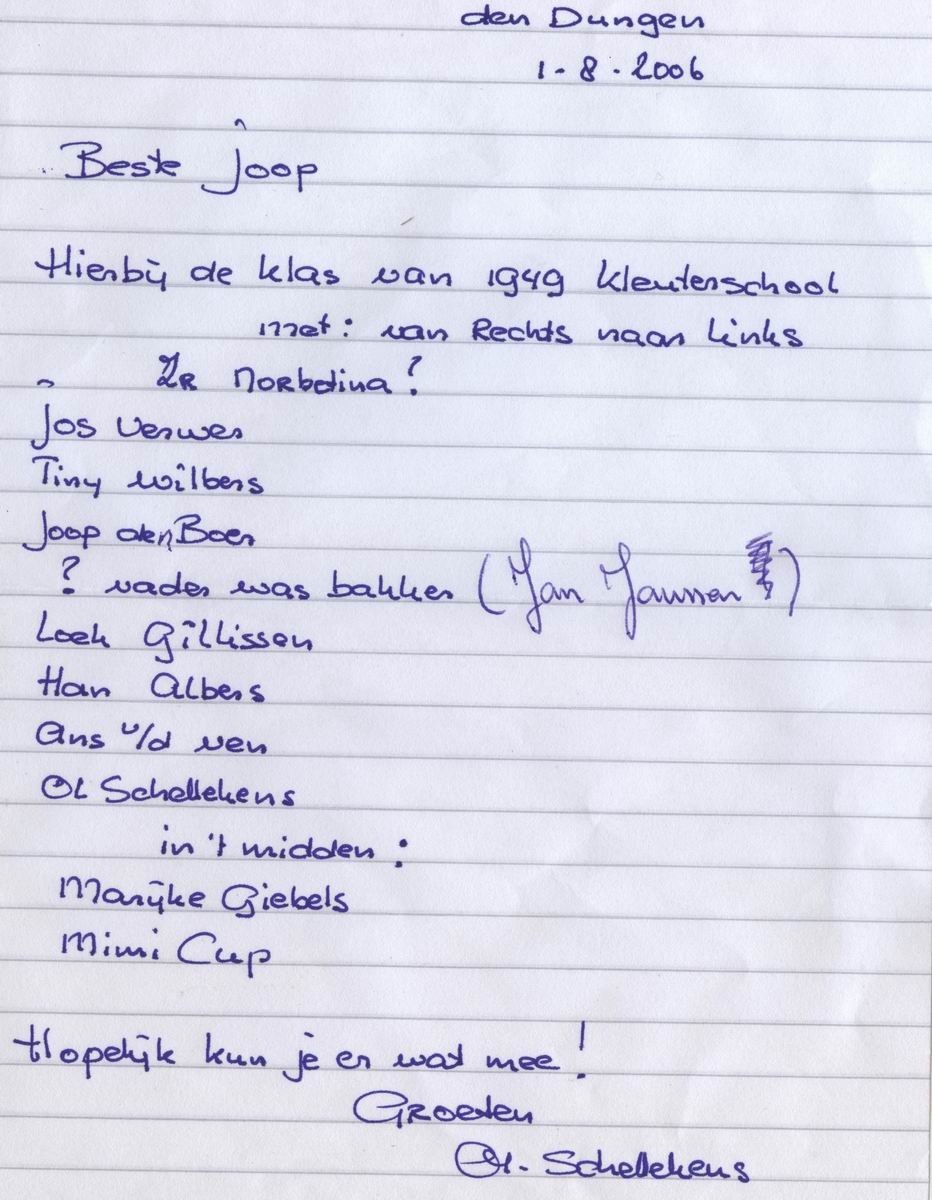 den Dungen
1-8-2006
Beste Joop
Hierbij de klas van 1949 kleuterschool
met: van Rechts naar links
Zr Norbetina?
Jos Verwer
Tiny Wilbers
Joop den Boer
? vader was bakker (Jan Janssen)
Loek Gillissen
Han Albers
Ans v/d Ven
Ol Schellekens
in 't midden:
Marijke Giebels
Mimi Cup
Hopelijk kun je er wat mee!
Groeten
Ol. Schellekens